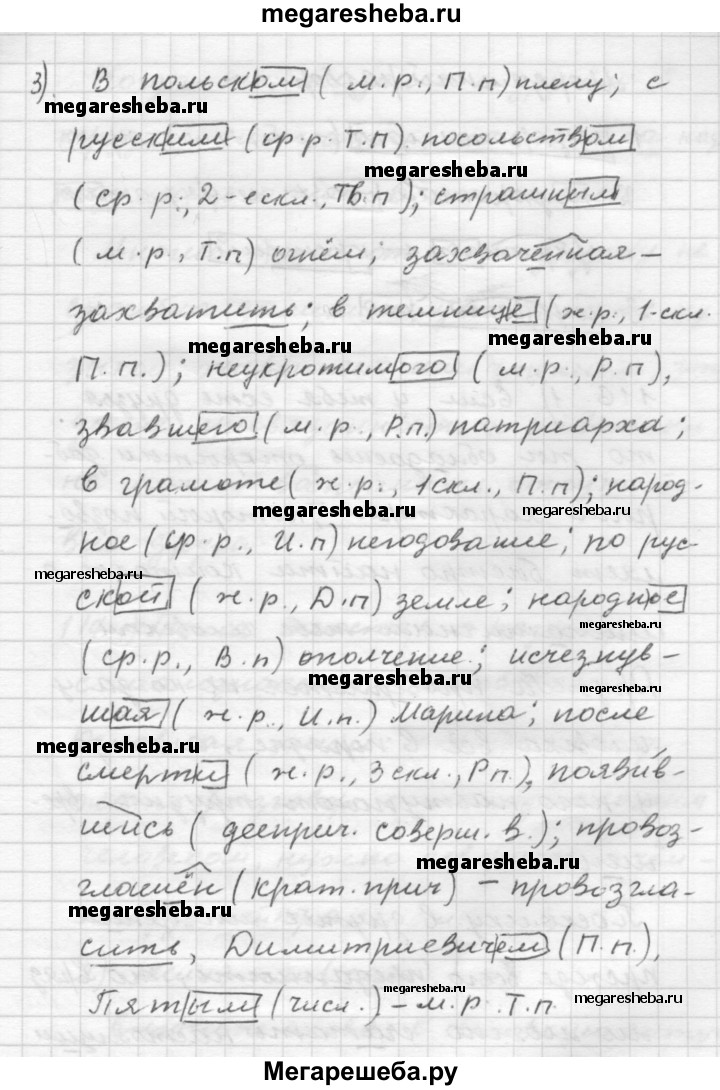 megaresheba.ru
3). В польском (м.р., П.п) плену; с
megaresheba.ru
русским (ср.р. Т.п) посольством
megaresheba.ru
(ср.р., 2-е скл., Тв.п); страшным
(м.р., Т.п) огнём; захваченная –
захватить; в темнице (ж.р., 1-скл.
megaresheba.ru
megaresheba.ru
П.п.); неукротимого (м.р., Р.п),
звавшего (м.р., Р.п.) патриарха;
в грамоте (ж.р., 1скл., П.п); народ-
megaresheba.ru
megaresheba.ru
ное (ср.р., И.п) негодование; по рус-
megaresheba.ru
ской (ж.р., Д.п) земле; народное
megaresheba.ru
(ср.р., В.п) ополчение; исчезнув-
megaresheba.ru
megaresheba.ru
шая (ж.р., И.п.) Марина; после
megaresheba.ru
смерти (ж.р., 3скл., Рп.), появив-
шись (дееприч. соверш. в.); провоз-
megaresheba.ru
глашён (крат. прич) – провозгла-
megaresheba.ru
сить, Димитриевичем (П.п.),
Пятым (числ.) – м.р. Т.п.
megaresheba.ru
megaresheba.ru
Мегарешеба.ру